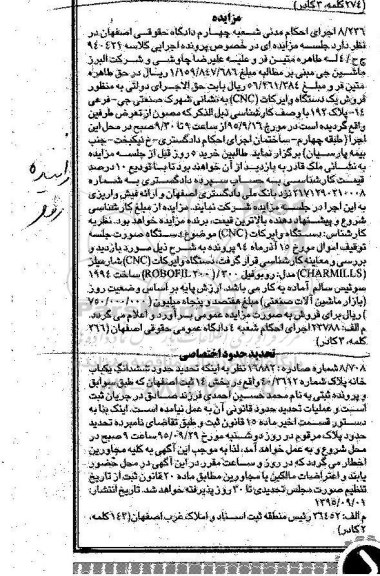 (۲۷۴ کلمه، ۳ کادر)
مزایده
۸/۲۳۶ اجرای احکام مدنی شعبه چهارم دادگاه حقوقی اصفهان در
نظر دارد جلسه مزایده ای در خصوص پرونده اجرایی کلاسه ۹۴۰۴۲۱
ج ح/۴ له طاهره متین فر و علیه علیرضا چاوشی و شرکت البرز
ماشین جی مبنی بر مطالبه مبلغ ۱/۱۵۹/۸۴۷/۶۸۶ ریال در حق طاهره
متین فر و مبلغ ۵۶/۴۶۱/۳۸۴ ریال بابت حق الاجرای دولتی به منظور
فروش یک دستگاه وایرکات (CNC) به نشانی شهرک صنعتی جی-فرعی
۱۴-پلاک ۱۹۲ با وصف کارشناسی ذیل الذکر که مصون از تعرض طرفین
واقع گردیده است در مورخ ۹۵/۹/۱۶ از ساعت ۹ تا ۹/۳۰ صبح در محل این
اجرا (طبقه چهارم-ساختمان اجرای احکام دادگستری-خ نیکبخت-جنب
بیمه پارسیان) برگزار نماید. طالبین خرید ۵ روز قبل از جلسه مزایده
به نشانی ملک قادر به بازدید از آن خواهند بود تا با تودیع ۱۰ درصد
قیمت کارشناسی به حساب سپرده دادگستری به شماره
۲۱۷۱۲۹۰۲۱۰۰۰۸ نزد بانک ملی دادگستری اصفهان و ارائه فیش واریزی
به این اجرا در جلسه مزایده شرکت نمایند. مزایده از مبلغ کارشناسی
شروع و پیشنهاد دهنده بالاترین قیمت، برنده مزایده خواهد بود. نظریه
کارشناس: دستگاه وایرکات (CNC) موضوع دستگاه صورت جلسه
توقیف اموال مورخ ۱۵ آذرماه ۹۴ پرونده به شرح ذیل مورد بازدید و
بررسی و معاینه کارشناسی قرار گرفت. دستگاه وایرکات (CNC) شارمیلز
(CHARMILLS) مدل: روبوفیل ۲۰۰ / (ROBOFIL ۲۰۰) ساخت ۱۹۹۴
سوئیس سالم آماده به کار می باشد. ارزش پایه بر اساس وضعیت روز
(بازار ماشین آلات صنعتی) مبلغ هفتصد و پنجاه میلیون (۷۵۰/۰۰۰/۰۰۰)
ریال برای فروش به صورت مزایده عمومی برآورد و اعلام می گردد.
م الف: ۲۳۷۸۸ اجرای احکام شعبه ۴ دادگاه عمومی حقوقی اصفهان (۲۶۶
کلمه، ۳ کادر)
تحدید حدود اختصاصی
۸/۷۰۸ شماره صادره: ۱۶۸۸۲ نظر به اینکه تحدید حدود ششدانگ یکباب
خانه پلاک شماره ۴۰/۳۶۴۲ واقع در بخش ۱۴ ثبت اصفهان که طبق سوابق
و پرونده ثبتی به نام محمد حسین احمدی فرزند صادق در جریان ثبت
است و عملیات تحدید حدود قانونی آن به عمل نیامده است. اینک بنا به
دستور قسمت اخیر ماده ۱۵ قانون ثبت و طبق تقاضای نامبرده تحدید
حدود پلاک مرقوم در روز دوشنبه مورخ ۹۵/۰۹/۲۹ ساعت ۹ صبح در
محل شروع و به عمل خواهد آمد، لذا به موجب این آگهی به کلیه مجاورین
اخطار می گردد که در روز و ساعت مقرر در این آگهی در محل حضور
یابند و اعتراضات مالکین یا مجاورین مطابق ماده ۲۰ قانون ثبت از تاریخ
تنظیم صورت مجلس تحدیدی تا ۳۰ روز پذیرفته خواهد شد. تاریخ انتشار:
۱۳۹۵/۰۹/۰۱
م الف: ۳۶۴۵۲ رئیس منطقه ثبت اسناد و املاک غرب اصفهان (۱۴۳ کلمه،
۲ کادر)